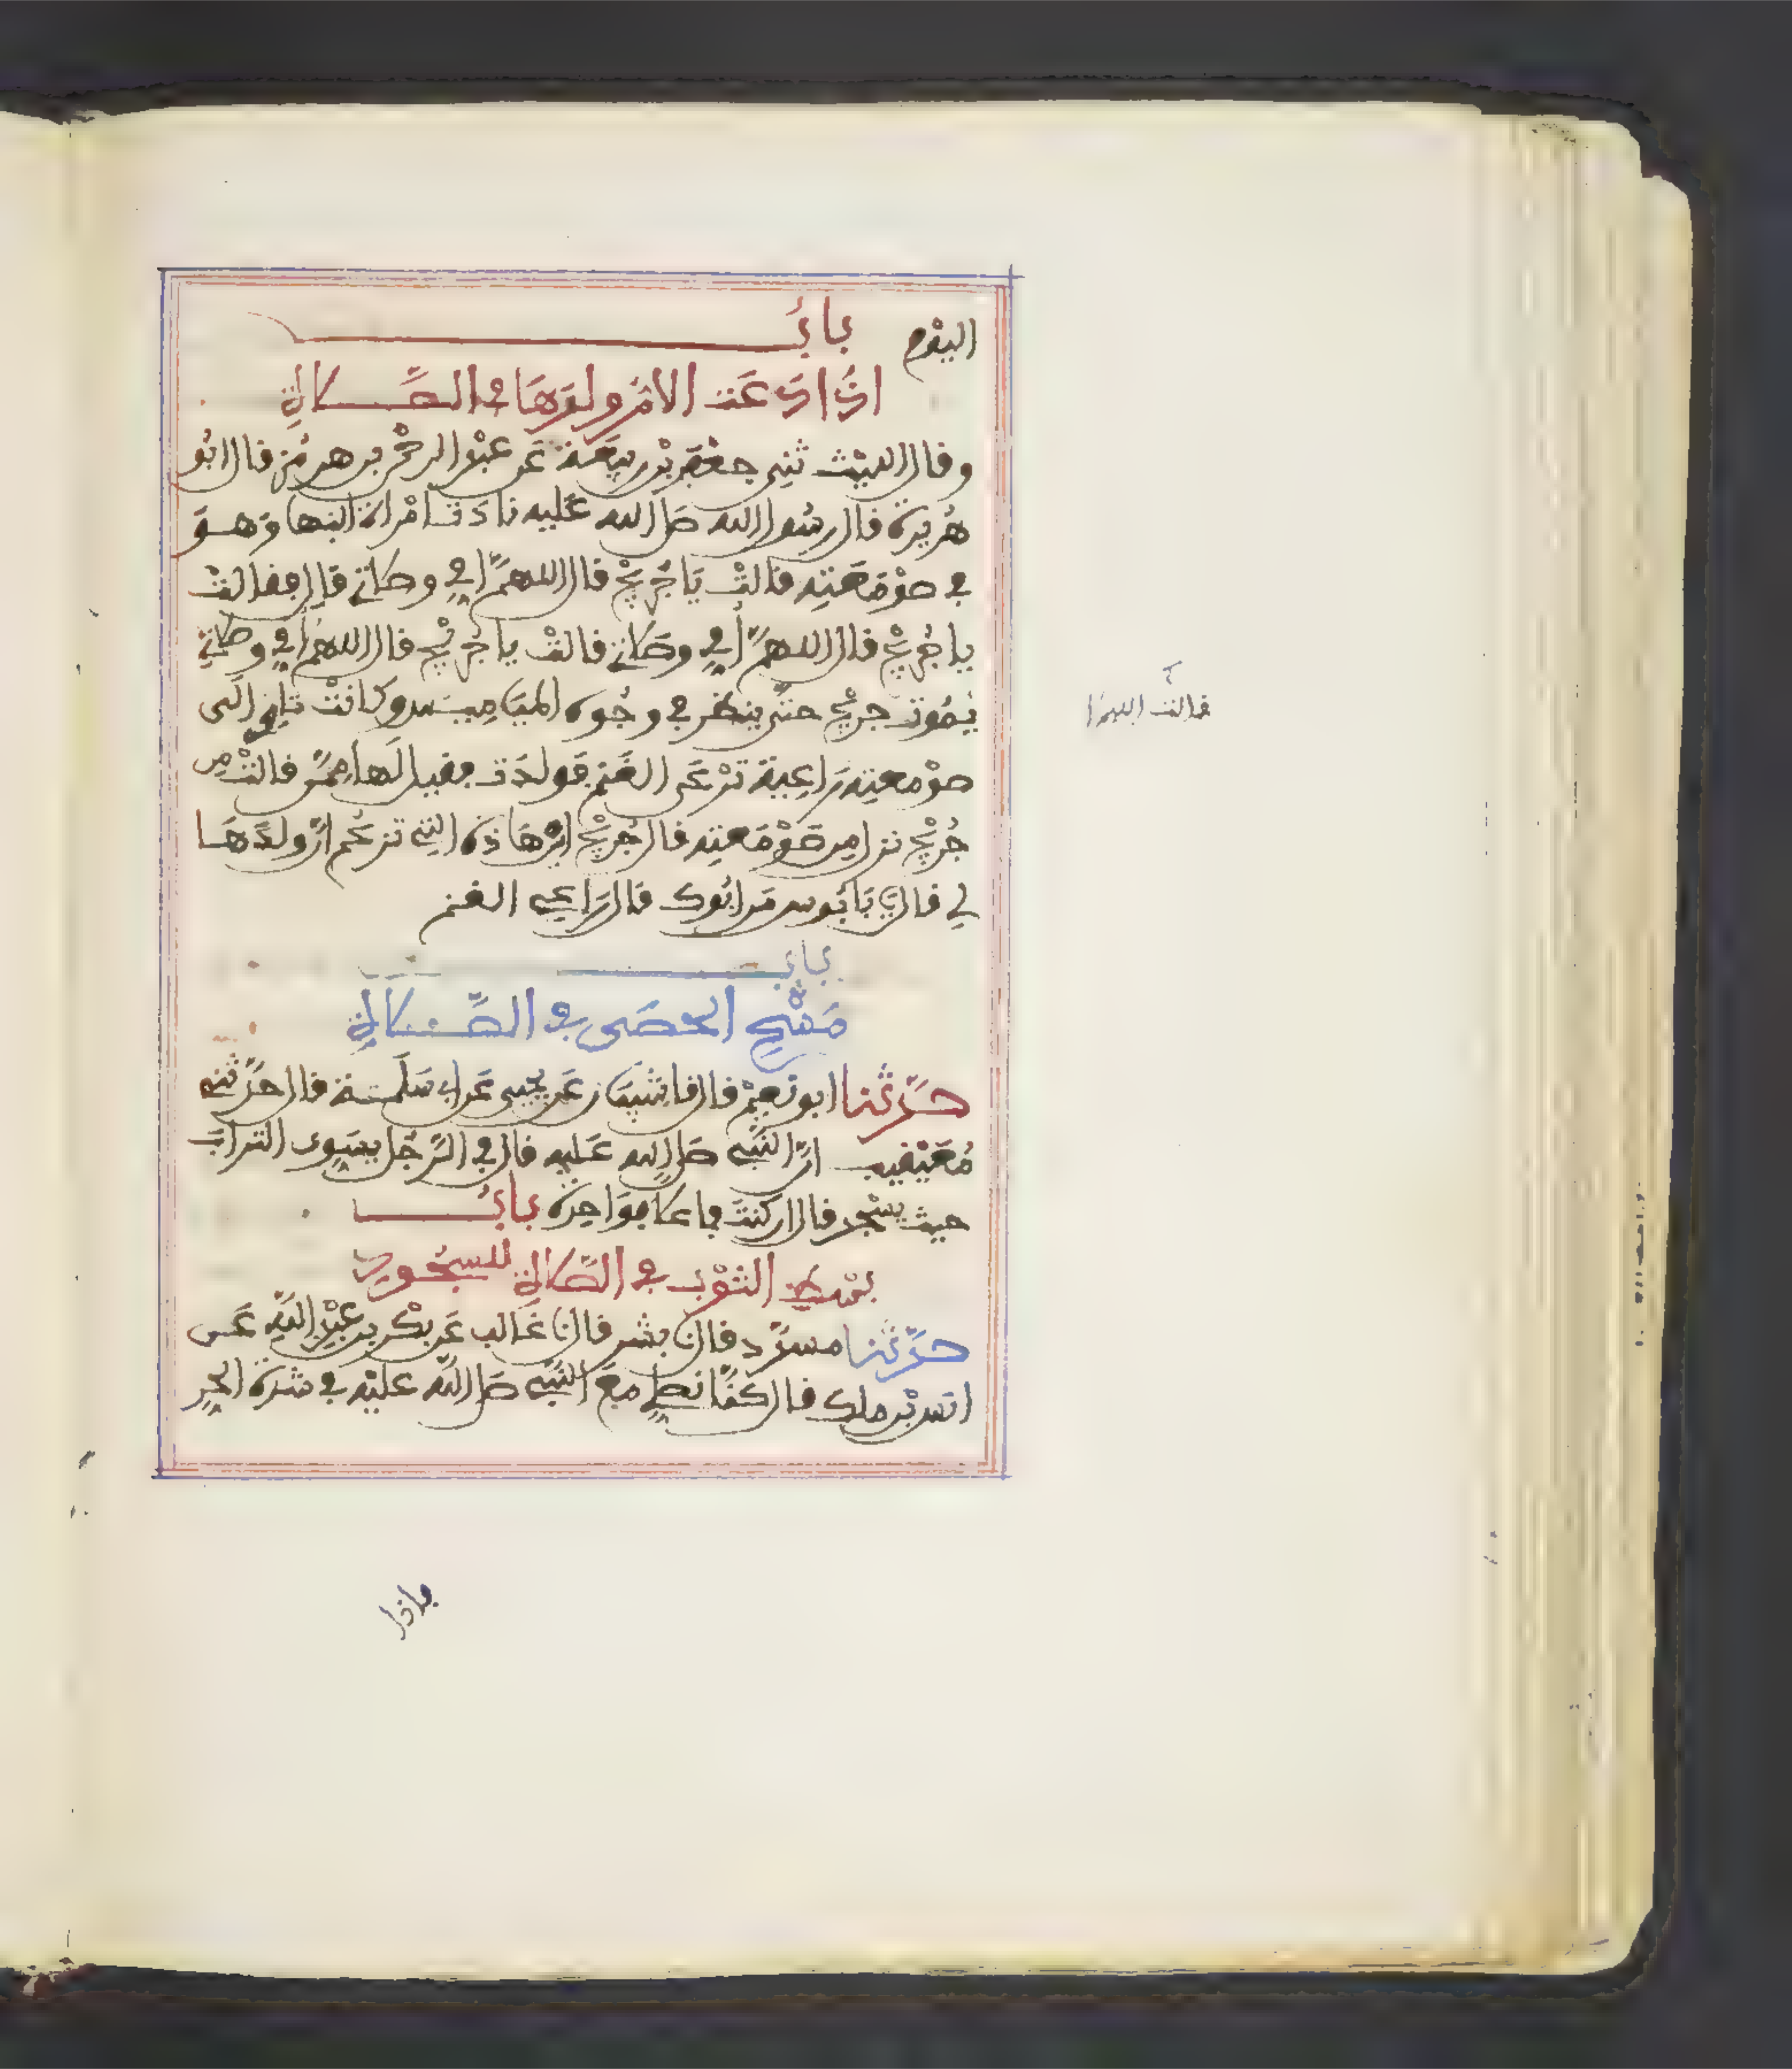 اليوم باب
اذا دعت الام ولدها في الصلاة
وقال الليث ثني جعفر بن ربيعة عن عبد الرحمن بن هرمز قال ابو
هريرة قال رسول الله صلى الله عليه نادت امراة ابنها وهو
في صومعته قالت يا جريج قال اللهم امي وصلاتي قال فقالت
يا جريج قال اللهم امي وصلاتي قالت يا جريج قال اللهم امي وصلاتي
يموت جريج حتى ينظر في وجوه المياميس وكانت تاوي الى
صومعته راعية ترعى الغنم فولدت فقيل لها ممن قالت من
جريج نزل من صومعته قال جريج اين هاذه التي تزعم ان ولدها
لي قال يا بابوس من ابوك قال راعي الغنم
باب
مسح الحصى في الصلاة
حدثنا ابو نعيم قال نا شيبان عن يحيى عن ابي سلمة قال حدثني
معيقيب ان النبي صلى الله عليه قال في الرجل يسوي التراب
حيث يسجد قال ان كنت فاعلا فواحدة باب
بسط الثوب في الصلاة للسجود
حدثنا مسدد قال نا بشر قال نا غالب عن بكر بن عبد الله عن
انس بن ملك قال كنا نصلي مع النبي صلى الله عليه في شدة الحر
قالت اللهم لا
فاذا